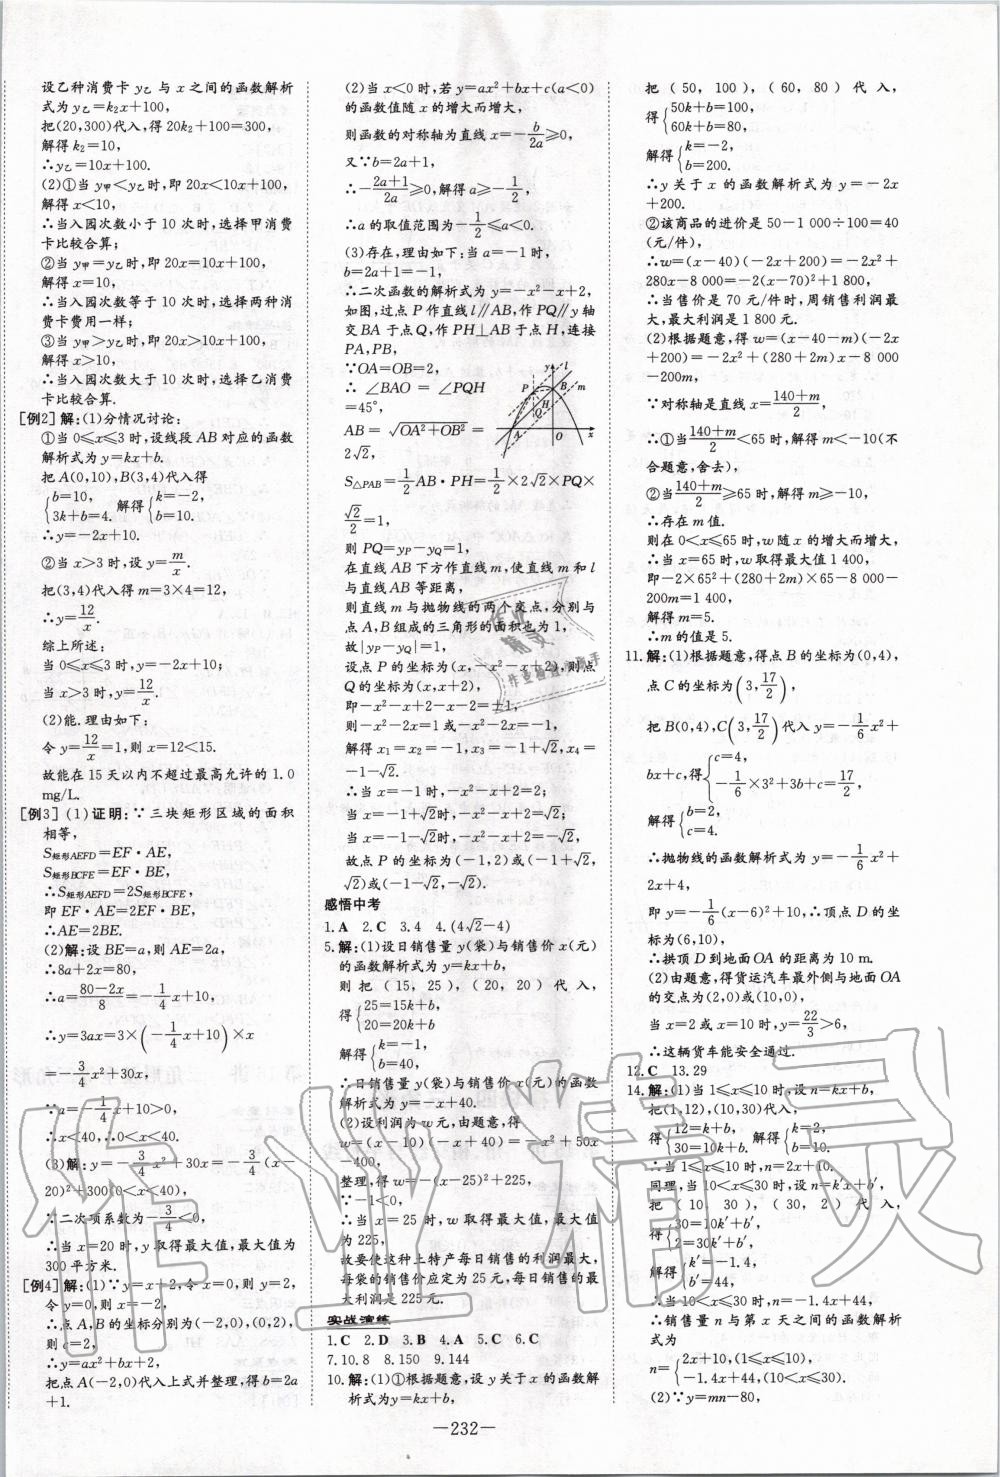 设乙种消费卡 y乙 与 x 之间的函数解析
式为 y乙=k₂x+100,
把(20,300)代入,得 20k₂+100=300,
解得 k₂=10,
∴y乙=10x+100.
(2)①当 y甲<y乙时,即 20x<10x+100,
解得 x<10,
∴当入园次数小于 10 次时,选择甲消费
卡比较合算;
②当 y甲=y乙时,即 20x=10x+100,
解得 x=10,
∴当入园次数等于 10 次时,选择两种消
费卡费用一样;
③当 y甲>y乙时,即 20x>10x+100,
解得 x>10,
∴当入园次数大于 10 次时,选择乙消费
卡比较合算.
[例2] 解:(1)分情况讨论:
①当 0≤x≤3 时,设线段 AB 对应的函数
解析式为 y=kx+b.
把 A(0,10),B(3,4)代入得
{b=10, 3k+b=4. 解得 {k=-2, b=10.
∴y=-2x+10.
②当 x>3 时,设 y=m/x.
把(3,4)代入得 m=3×4=12,
∴y=12/x.
综上所述:
当 0≤x≤3 时,y=-2x+10;
当 x>3 时,y=12/x.
(2)能.理由如下:
令 y=12/x=1,则 x=12<15.
故能在 15 天以内不超过最高允许的 1.0
mg/L.
[例3] (1)证明:∵三块矩形区域的面积
相等,
S矩形AEFD=EF·AE,
S矩形BCFE=EF·BE,
∴S矩形AEFD=2S矩形BCFE,
即 EF·AE=2EF·BE,
∴AE=2BE.
(2)解:设 BE=a,则 AE=2a,
∴8a+2x=80,
∴a=(80-2x)/8=-1/4x+10,
∴y=3ax=3×(-1/4x+10)×x
=-3/4x²+30x,
∵a=-1/4x+10>0,
∴x<40,∴0<x<40.
(3)解:y=-3/4x²+30x=-3/4(x-
20)²+300(0<x<40),
∵二次项系数为-3/4<0,
∴当 x=20 时,y 取得最大值,最大值为
300 平方米.
[例4] 解:(1)∵y=x+2,令 x=0,则 y=2,
令 y=0,则 x=-2,
∴点 A,B 的坐标分别为(-2,0),(0,2),
则 c=2,
∴y=ax²+bx+2,
把点 A(-2,0)代入上式并整理,得 b=2a
+1.
(2)当 x<0 时,若 y=ax²+bx+c(a<0)
的函数值随 x 的增大而增大,
则函数的对称轴为直线 x=-b/2a≥0,
又∵b=2a+1,
∴-(2a+1)/2a≥0,解得 a≥-1/2,
∴a 的取值范围为-1/2≤a<0.
(3)存在,理由如下:当 a=-1 时,
b=2a+1=-1,
∴二次函数的解析式为 y=-x²-x+2,
如图,过点 P 作直线 l∥AB,作 PQ∥y 轴
交 BA 于点 Q,作 PH⊥AB 于点 H,连接
PA,PB,
∵OA=OB=2,
∴∠BAO=∠PQH
=45°,
AB=√(OA²+OB²)=
2√2,
y l B m P H Q A O x
S△PAB=1/2AB·PH=1/2×2√2×PQ×
√2/2=1,
则 PQ=yP-yQ=1,
在直线 AB 下方作直线 m,使直线 m 和 l
与直线 AB 等距离,
则直线 m 与抛物线的两个交点,分别与
点 A,B 组成的三角形的面积也为 1,
故|yP-yQ|=1,
设点 P 的坐标为(x,-x²-x+2),则点
Q 的坐标为(x,x+2),
即-x²-x+2-x-2=±1,
则-x²-2x=1 或-x²-2x=-1,
解得 x₁=x₂=-1,x₃=-1+√2,x₄=
-1-√2.
∴当 x=-1 时,-x²-x+2=2;
当 x=-1+√2时,-x²-x+2=√2;
当 x=-1-√2时,-x²-x+2=-√2,
故点 P 的坐标为(-1,2)或(-1+√2,
√2)或(-1-√2,-√2).
感悟中考
1.A 2.C 3.4 4.(4√2-4)
5.解:(1)设日销售量 y(袋)与销售价 x(元)
的函数解析式为 y=kx+b,
则把(15,25),(20,20)代入,
得{25=15k+b, 20=20k+b
解得{k=-1, b=40.
∴日销售量 y(袋)与销售价 x(元)的函数
解析式为 y=-x+40.
(2)设利润为 w 元,由题意,得
w=(x-10)(-x+40)=-x²+50x
-400,
整理,得 w=-(x-25)²+225,
∵-1<0,
∴当 x=25 时,w 取得最大值,最大值
为 225,
故要使这种土特产每日销售的利润最大,
每袋的销售价应定为 25 元,每日销售的最
大利润是 225 元.
实战演练
1.C 2.D 3.B 4.A 5.C 6.C
7.10.8 8.150 9.144
10.解:(1)①根据题意,设 y 关于 x 的函数解
析式为 y=kx+b,
把(50,100),(60,80)代入,
得{50k+b=100, 60k+b=80,
解得{k=-2, b=200.
∴y 关于 x 的函数解析式为 y=-2x
+200.
②该商品的进价为 50-1 000÷100=40
(元/件),
∴w=(x-40)(-2x+200)=-2x²+
280x-8 000=-2(x-70)²+1 800,
∴当售价是 70 元/件时,周销售利润最
大,最大利润是 1 800 元.
(2)根据题意,得 w=(x-40-m)(-2x
+200)=-2x²+(280+2m)x-8 000
-200m,
∵对称轴是直线 x=(140+m)/2,
∴①当(140+m)/2<65 时,解得 m<-10(不
合题意,舍去),
②当(140+m)/2≥65 时,解得 m≥-10,
∴存在 m 值.
则在 0<x≤65 时,w 随 x 的增大而增大,
∴当 x=65 时,w 取得最大值 1 400,
即-2×65²+(280+2m)×65-8 000-
200m=1 400,
解得 m=5.
∴m 的值是 5.
11.解:(1)根据题意,得点 B 的坐标为(0,4),
点 C 的坐标为(3,17/2),
把 B(0,4),C(3,17/2)代入 y=-1/6x²+
bx+c,得{c=4, -1/6×3²+3b+c=17/2,
解得{b=2, c=4.
∴抛物线的函数解析式为 y=-1/6x²+
2x+4,
即 y=-1/6(x-6)²+10,∴顶点 D 的坐
标为(6,10),
∴拱顶 D 到地面 OA 的距离为 10 m.
(2)由题意,得货运汽车最外侧与地面 OA
的交点为(2,0)或(10,0),
当 x=2 或 x=10 时,y=22/3>6,
∴这辆货车能安全通过.
12.C 13.29
14.解:(1)当 1≤x≤10 时,设 n=kx+b,
把(1,12),(10,30)代入,
得{12=k+b, 30=10k+b. 解得{k=2, b=10.
∴当 1≤x≤10 时,n=2x+10.
同理,当 10<x≤30 时,设 n=k′x+b′,
把(10,30),(30,2)代入,
得{30=10k′+b′, 2=30k′+b′.
解得{k′=-1.4, b′=44,
∴当 10<x≤30 时,n=-1.4x+44,
∴销售量 n 与第 x 天之间的函数解析
式为
n={2x+10,(1≤x≤10), -1.4x+44,(10<x≤30).
(2)∵y=mn-80,
—232—
作业精灵
作业精灵
作业检查小助手